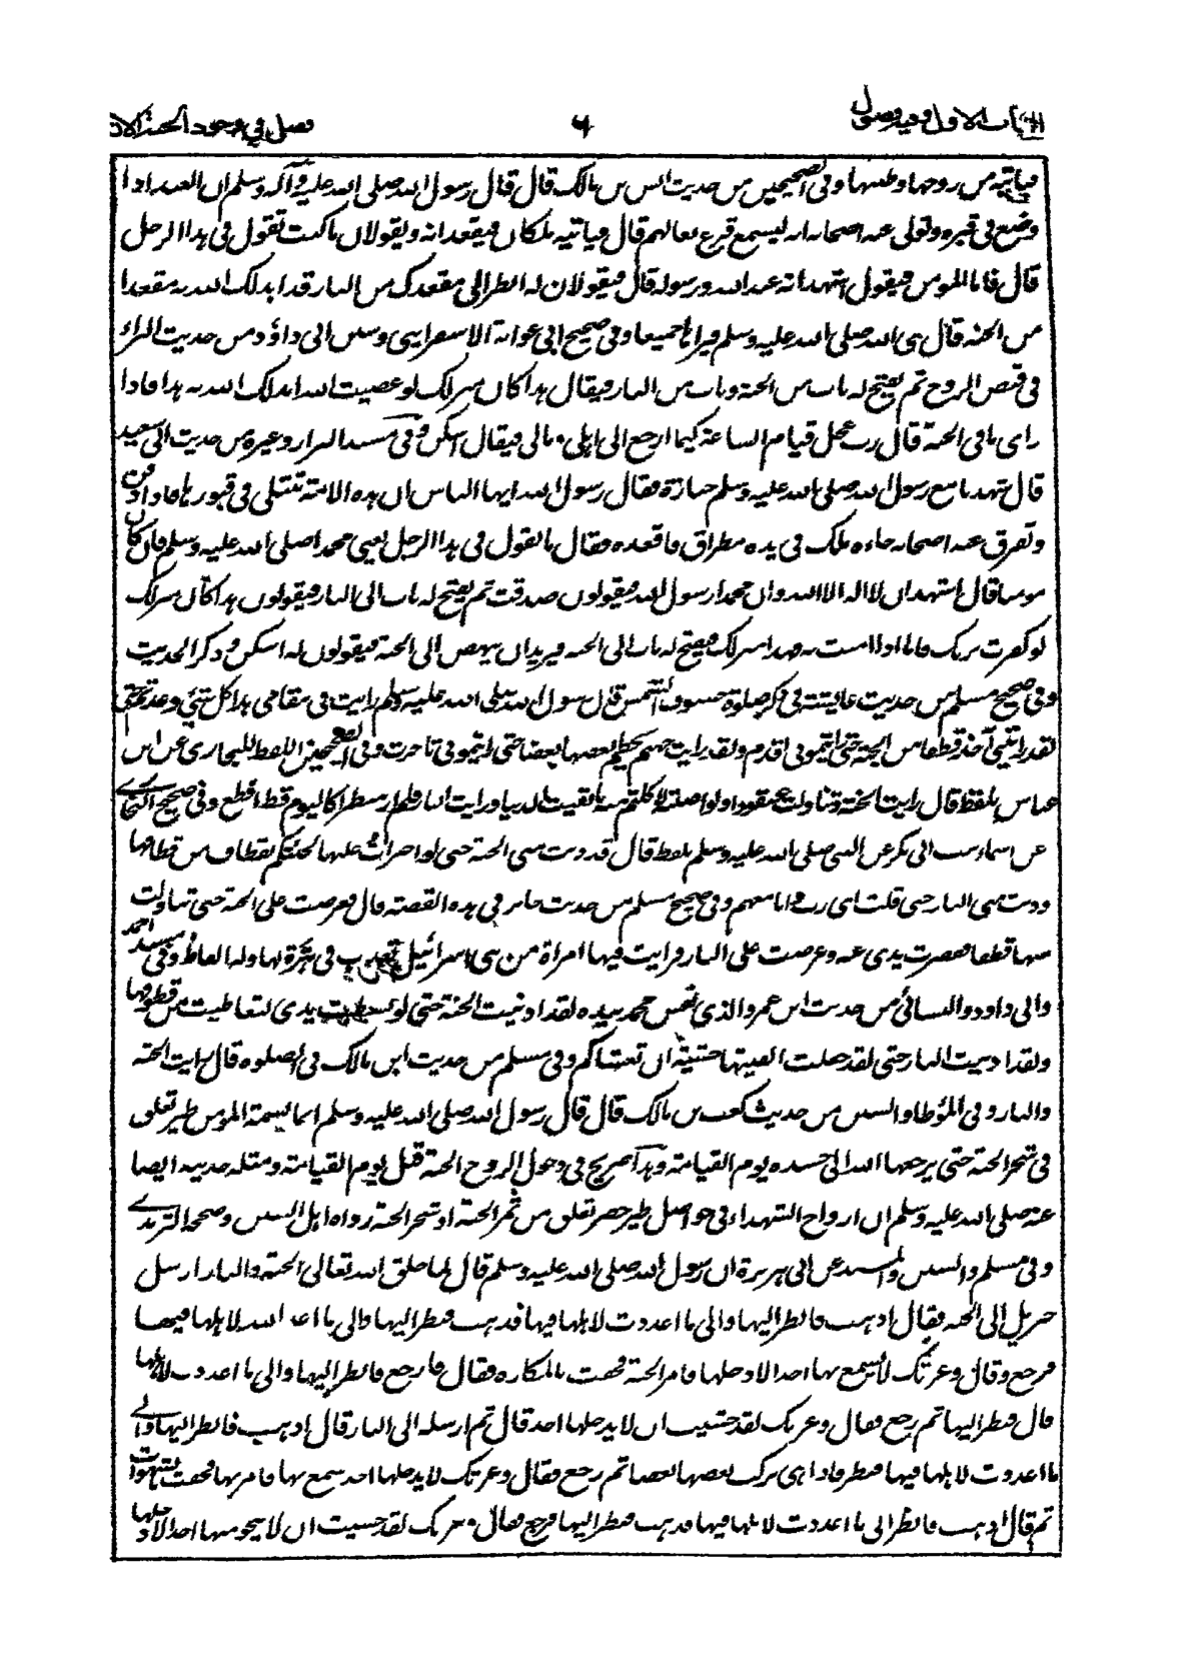 الباب الاول وفيه فصول ٦ فصل في وجود الجنة الآن
فياتيه من روحها وطيبها وفي الصحيحين من حديث انس بن مالك قال قال رسول الله صلى الله عليه وآله وسلم ان العبد اذا
وضع في قبره وتولى عنه اصحابه انه ليسمع قرع نعالهم قال فياتيه ملكان فيقعدانه ويقولان ما كنت تقول في هذا الرجل
قال فاما المومن فيقول اشهد انه عبد الله ورسوله قال فيقولان له انظر الى مقعدك من النار قد ابدلك الله به مقعدا
من الجنة قال نبى الله صلى الله عليه وسلم فيراهما جميعا وفي صحيح ابي عوانة الاسفرايني وسنن ابى داؤد من حديث البراء
في قبض الروح ثم يفتح له باب من الجنة وباب من النار فيقال هذا كان منزلك لو عصيت الله ابدلك الله به هذا فاذا
راى ما في الجنة قال رب عجل قيام الساعة كيما ارجع الى اهلي ومالي فيقال اسكن وفي مسند البزار وغيره من حديث ابى سعيد
قال شهدنا مع رسول الله صلى الله عليه وسلم جنازة فقال رسول الله ايها الناس ان هذه الامة تبتلى في قبورها فاذا دفن
وتفرق عنه اصحابه جاءه ملك في يده مطراق فاقعده فقال ما تقول في هذا الرجل يعني محمدا صلى الله عليه وسلم فان كان
مومنا قال اشهد ان لا اله الا الله وان محمدا رسول الله فيقولون صدقت ثم يفتح له باب الى النار فيقولون هذا كان منزلك
لو كفرت بربك فاما اذا امنت به فهذا منزلك فيفتح له باب الى الجنة فيريد ان ينهض الى الجنة فيقولون له اسكن وذكر الحديث
وفي صحيح مسلم من حديث عايشة في ذكر صلوة خسوف الشمس قال رسول الله صلى الله عليه وسلم رايت في مقامي هذا كل شيء وعدتم حتى
لقد رايتني آخذ قطفا من الجنة حتى رايتموني اقدم ولقد رايت جهنم يحطم بعضها بعضا حتى رايتموني تاخرت وفي الصحيحين اللفظ للبخاري عن ابن
عباس بلفظ قال رايت الجنة وتناولت عنقودا ولو اصبته لاكلتم منه ما بقيت الدنيا ورايت النار فلم ار منظرا كاليوم قط افظع وفي صحيح البخاري
عن اسماء بنت ابى بكر عن النبي صلى الله عليه وسلم بلفظ قال قد دنت منى الجنة حتى لو اجترات عليها لجئتكم بقطاف من قطافها
ودنت منى النار حتى قلت اى رب وانا معهم وفي صحيح مسلم من حديث جابر في هذه القصة قال فعرضت علي الجنة حتى تناولت
منها قطفا فقصرت يدى عنه وعرضت على النار فرايت فيها امراة من بني اسرائيل تعذب في هرة لها وله الفاظ وفي مسند احمد
وابى داود والنسائي من حديث ابن عمرو والذى نفس محمد بيده لقد ادنيت الجنة حتى لو بسطت يدى لتعاطيت من قطوفها
ولقد ادنيت النار حتى لقد جعلت اتقيها خشية ان تغشاكم وفي مسلم من حديث انس بن مالك في الصلوة قال رايت الجنة
والنار وفي المؤطا والسنن من حديث كعب بن مالك قال قال رسول الله صلى الله عليه وسلم انما نسمة المومن طير تعلق
في شجر الجنة حتى يرجعها الله الى جسده يوم القيامة وهذا صريح في دخول الروح الجنة قبل يوم القيامة ومثله حديثه ايضا
عنه صلى الله عليه وسلم ان ارواح الشهداء في حواصل طير خضر تعلق من ثمر الجنة او شجر الجنة رواه اهل السنن وصححه الترمذي
وفي مسلم والسنن والمسند عن ابى هريرة ان رسول الله صلى الله عليه وسلم قال لما خلق الله تعالى الجنة والنار ارسل
جبريل الى الجنة فقال اذهب فانظر اليها والى ما اعددت لاهلها فيها فذهب فنظر اليها والى ما اعد الله لاهلها فيها
فرجع وقال وعزتك لا يسمع بها احد الا دخلها فامر الجنة فحفت بالمكاره فقال فارجع فانظر اليها والى ما اعددت لاهلها
قال فنظر اليها ثم رجع فقال وعزتك لقد خشيت ان لا يدخلها احد قال ثم ارسله الى النار قال اذهب فانظر اليها والى
ما اعددت لاهلها فيها فنظر فاذا هى يركب بعضها بعضا ثم رجع فقال وعزتك لا يدخلها احد سمع بها فامر بها فحفت بالشهوات
ثم قال اذهب فانظر الى ما اعددت لاهلها فيها فذهب فنظر اليها فرجع فقال وعزتك لقد خشيت ان لا ينجو منها احد الا دخلها